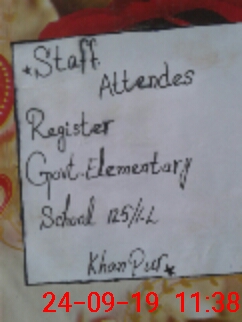 Staff
Attendes
Register
Govt. Elementary
School 125/1L
Khan Pur
24-09-19 11:38